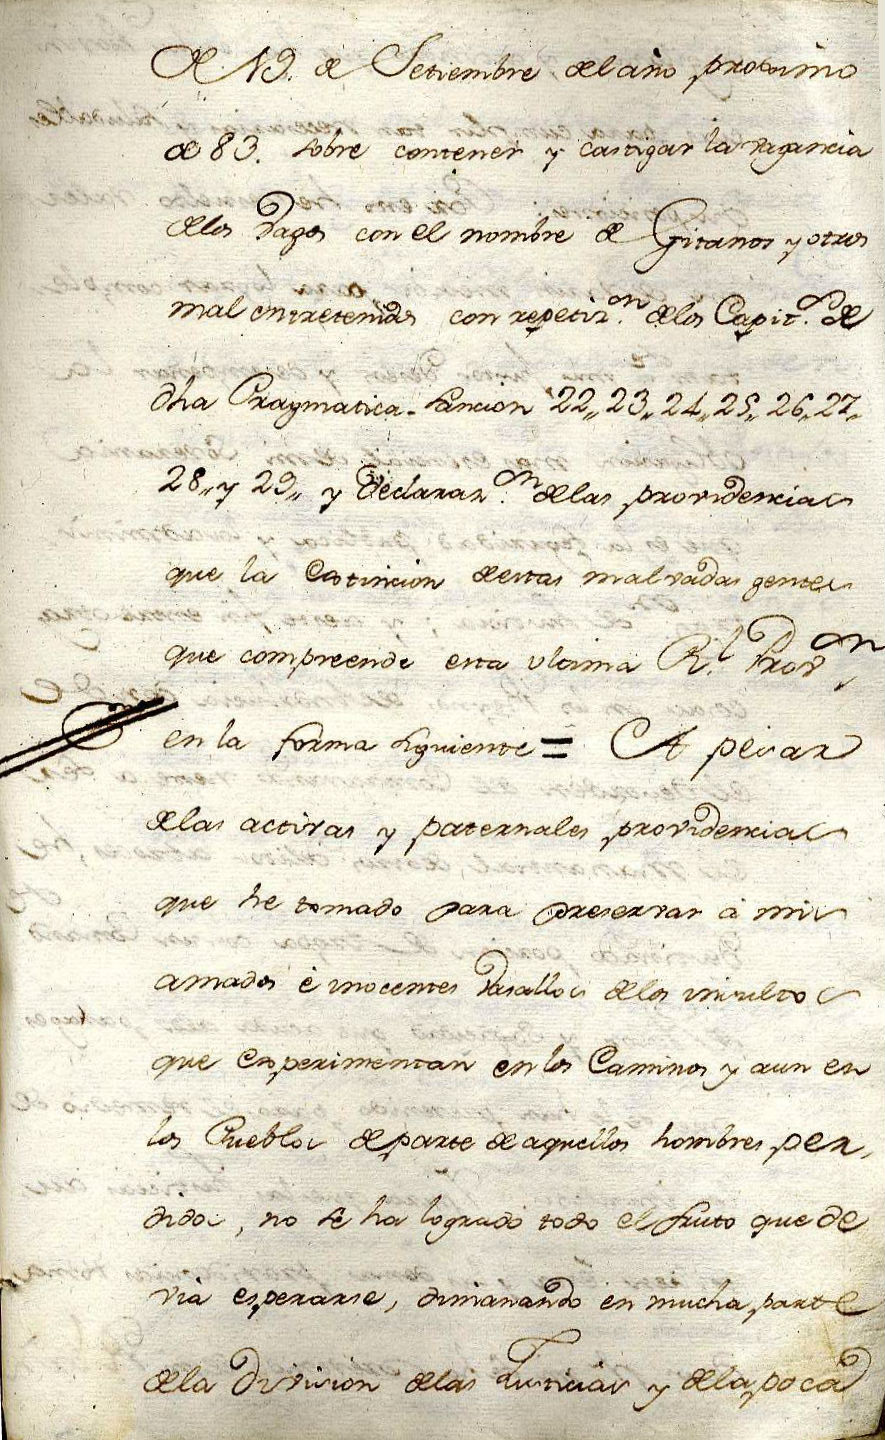 de 19. de Setiembre del año proximo
de 83. sobre contener y castigar la vagancia
delos Vagos con el nombre de Gitanos y otros
mal entretenidos con repetiz.on delos Capit.s de
dha Pragmatica-Sancion 22,, 23,, 24,, 25,, 26,, 27,,
28,, y 29,, y declaraz.on delas providencias
que la extincion destas malvadas gentes
que compreende esta ultima R.l Prov.on
en la forma siguiente = A pesar
delas activas y paternales providencias
que he tomado para preservar á mis
amados é inocentes Vasallos delos insultos
que experimentan en los Caminos y aun en
los Pueblos de parte de aquellos hombres per,
didos, no se ha logrado todo el fruto que de
via esperarse, dimanando en mucha parte
dela Division delas Justicias y dela poca